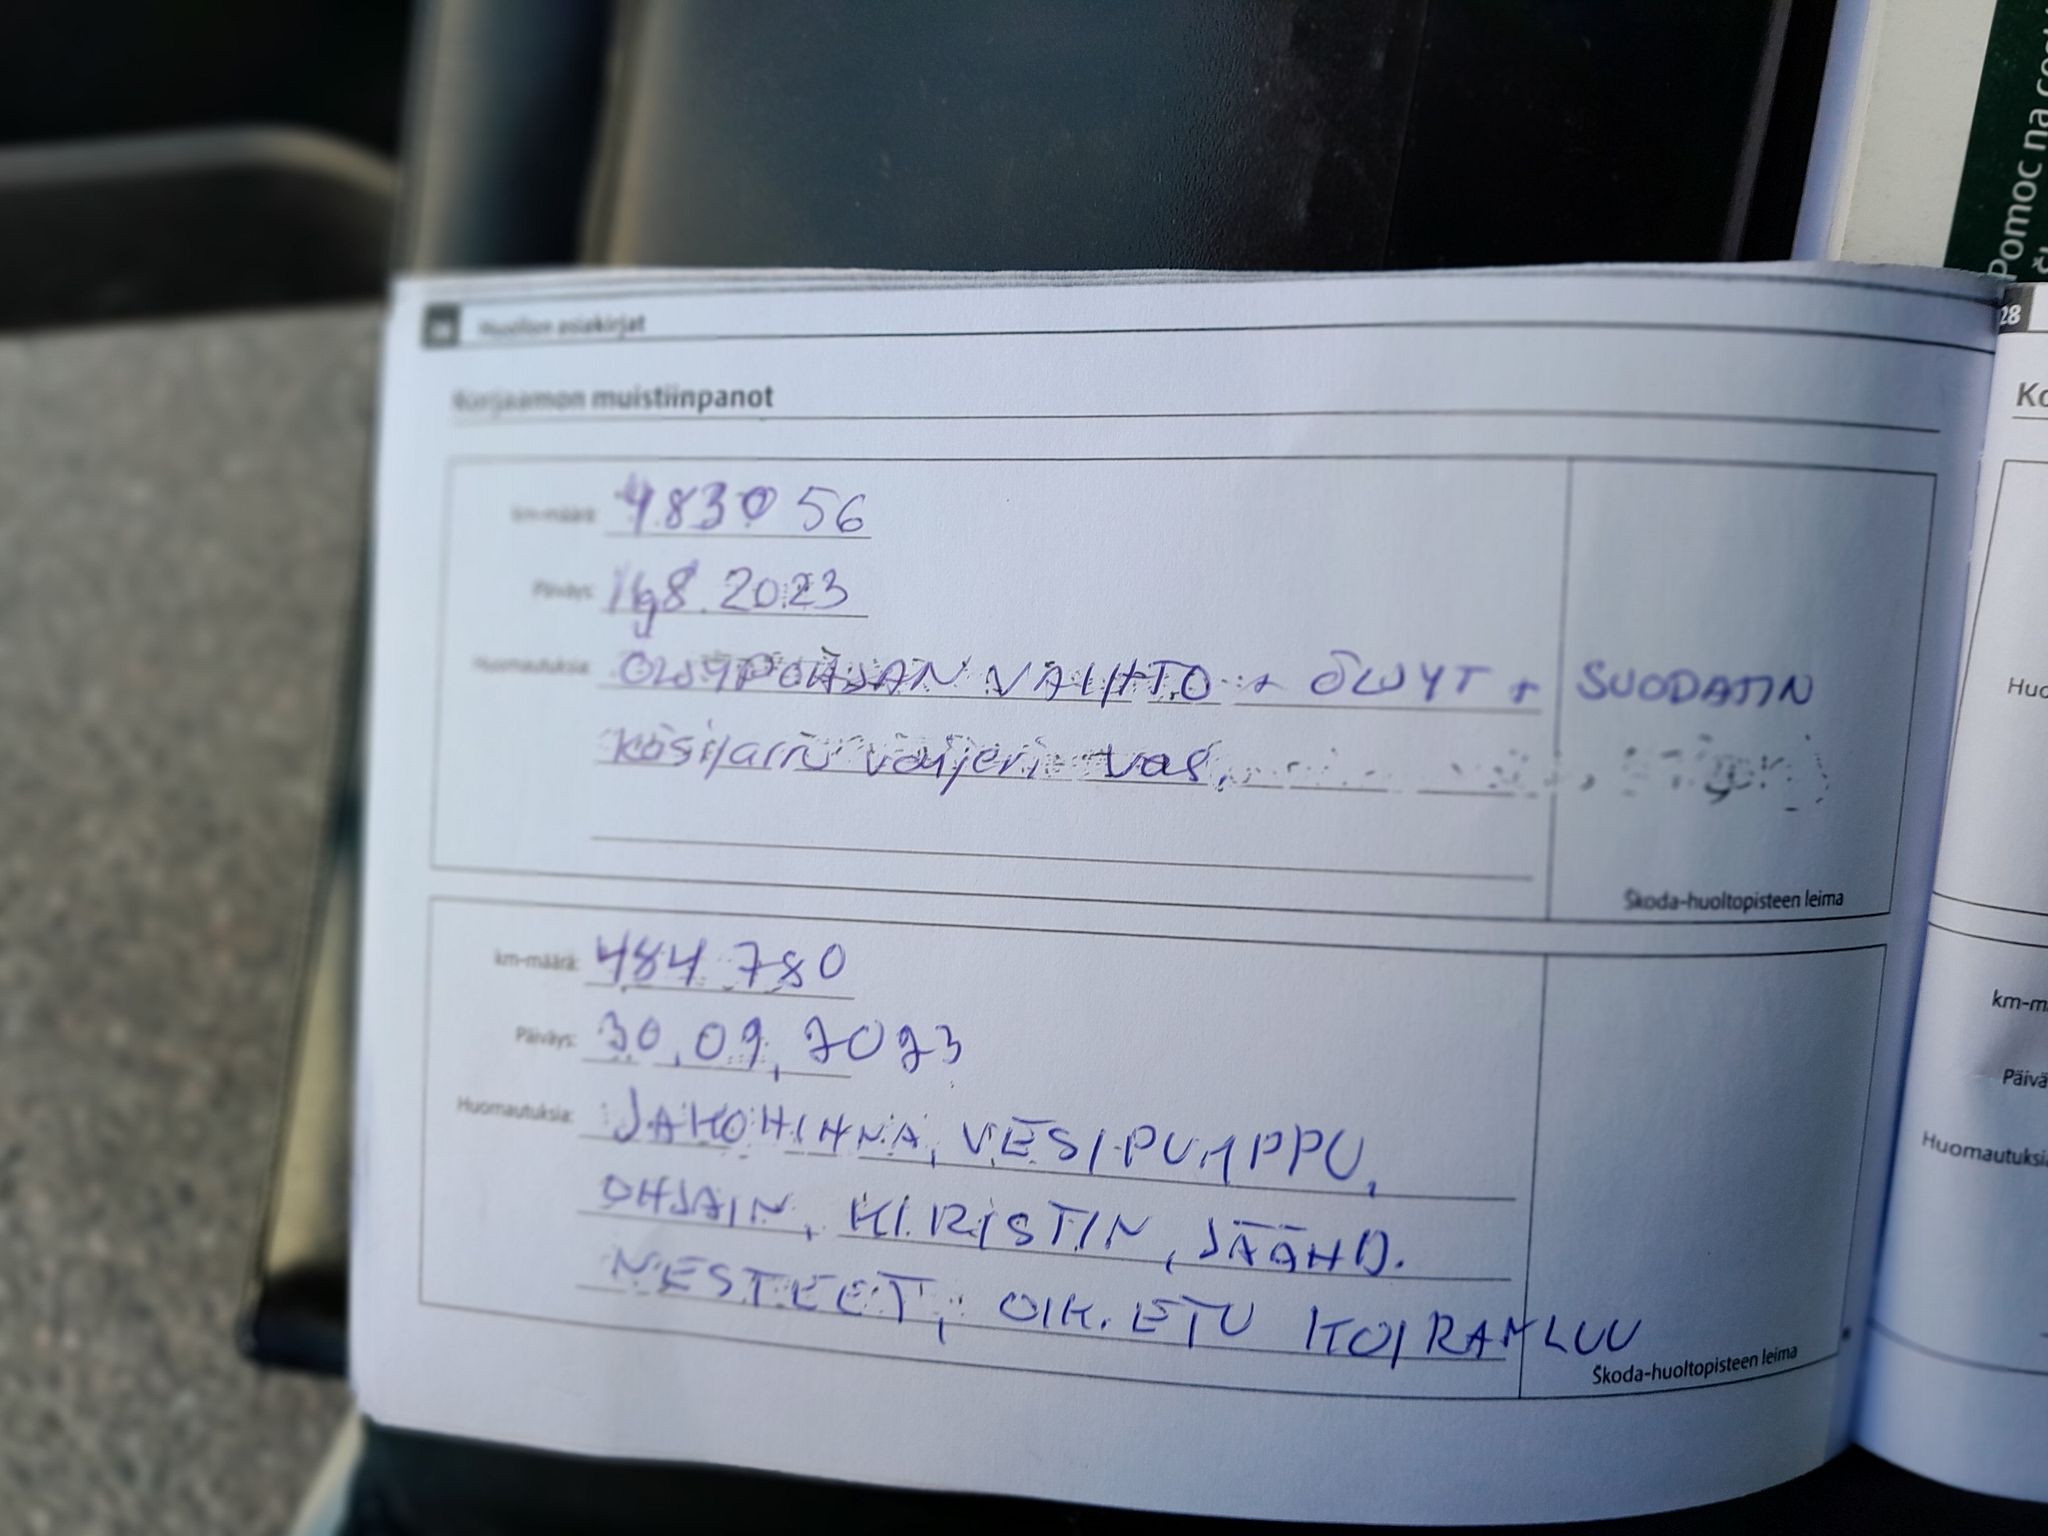 Huollon asiakirjat
Korjaamon muistiinpanot
km-määrä: 483056
Päiväys: 8.2023
Huomautuksia: ÖLJYPOHJAN VAIHTO + ÖLJYT + SUODATIN
Käsijarru vaijeri vas.
Škoda-huoltopisteen leima
km-määrä: 484 780
Päiväys: 30.09.2023
Huomautuksia: JAKOHIHNA, VESIPUMPPU,
OHJAIN, KIRISTIN, JÄÄHD.
NESTEET, OIK. ETU KOIRANLUU
Škoda-huoltopisteen leima
28
Ko
Huo
km-m
Päivä
Huomautuksi
Pomoc na